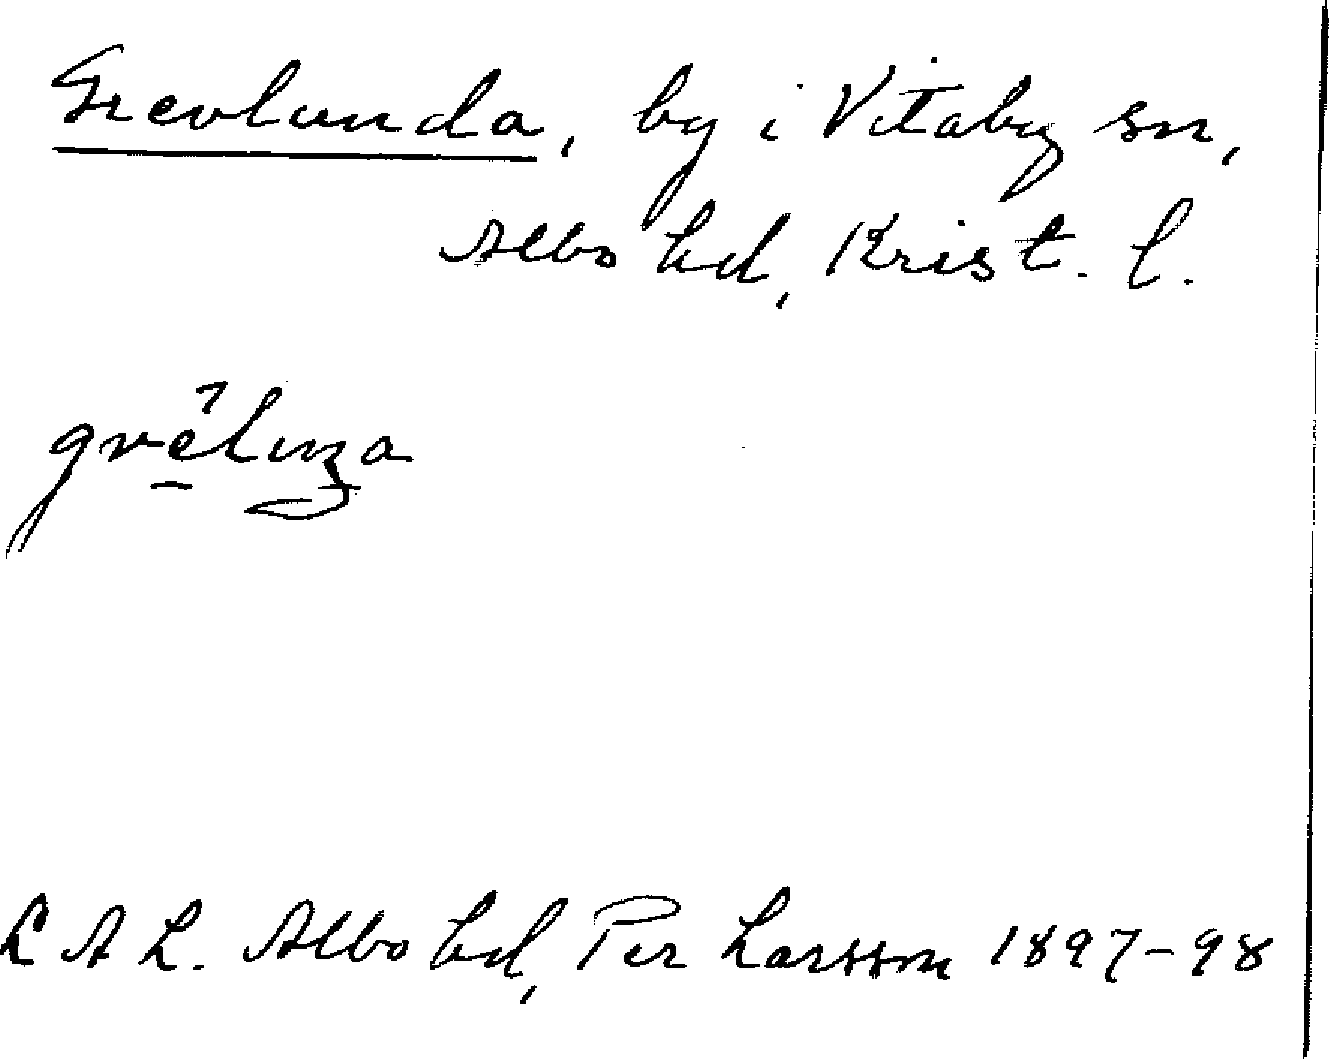 Grevlunda, by i Vitaby sn,
Albo hd, Krist. l.
L A L. Albo hd, Per Larsson 1897-98